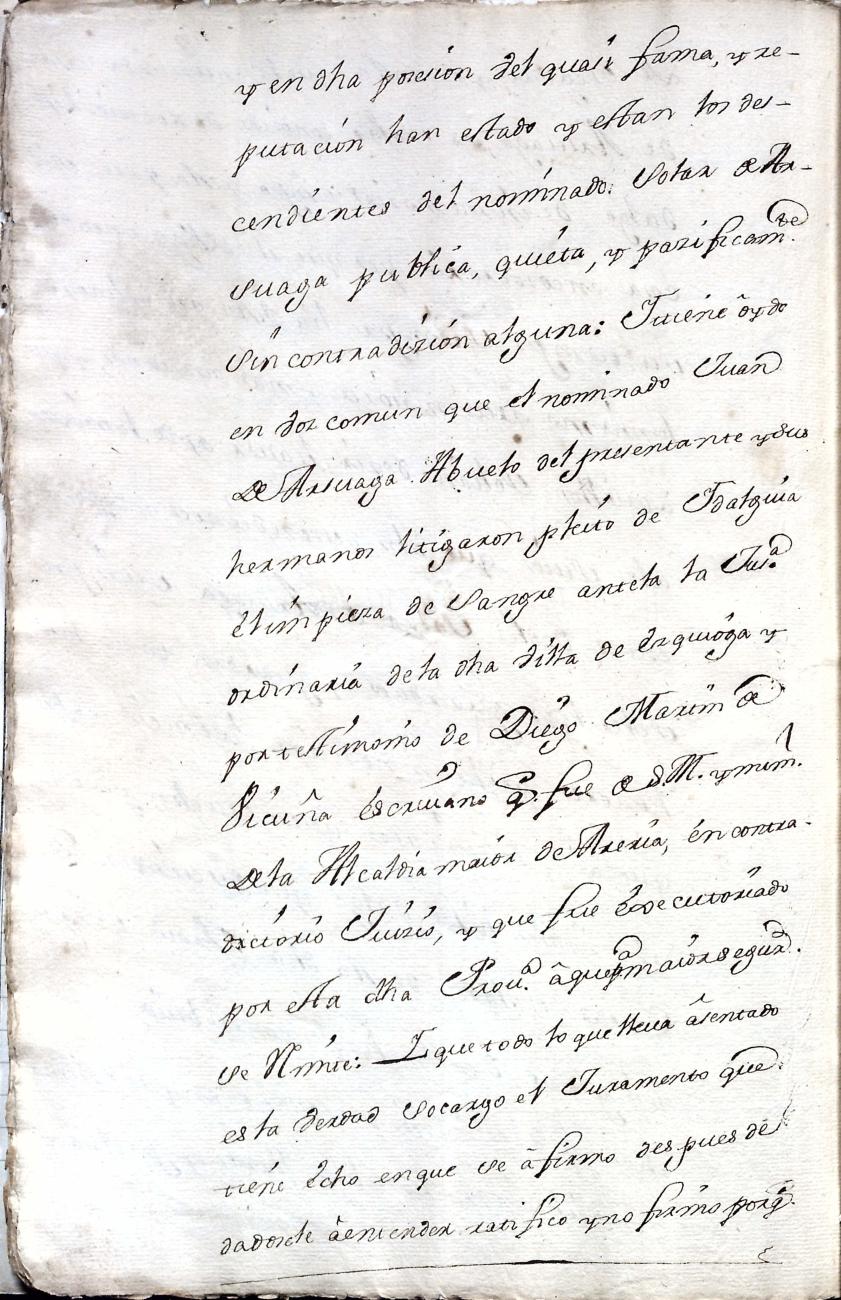 y en dha posesion del quasi fama, y re-
putacion han estado y estan los des-
cendientes del nominado Solar de Ar-
suaga publica, quieta, y pazificamte.
sin contradizion alguna: Y tiene oydo
en voz comun que el nominado Juan
de Arsuaga Abuelo del presentante y sus
hermanos litigaron pleito de Idalguia
e limpieza de sangre antela la Jusa.
ordinaria de la dha villa de Ezquioga y
por testimonio de Diego Martin de
Vicuña escriuano q. fue de S. M. y num.l
de la Alcaldia maior de Areria, en contra-
dictorio Juizio, y que fue executoriado
por esta dha Proua. â que pa maior segurd.
se Rimite: Y que todo lo que lleua âsentado
es la verdad socargo el Juramento que
tiene êcho en que se âfirmo despues de
dadosele âentender ratifico y no firmo porq.